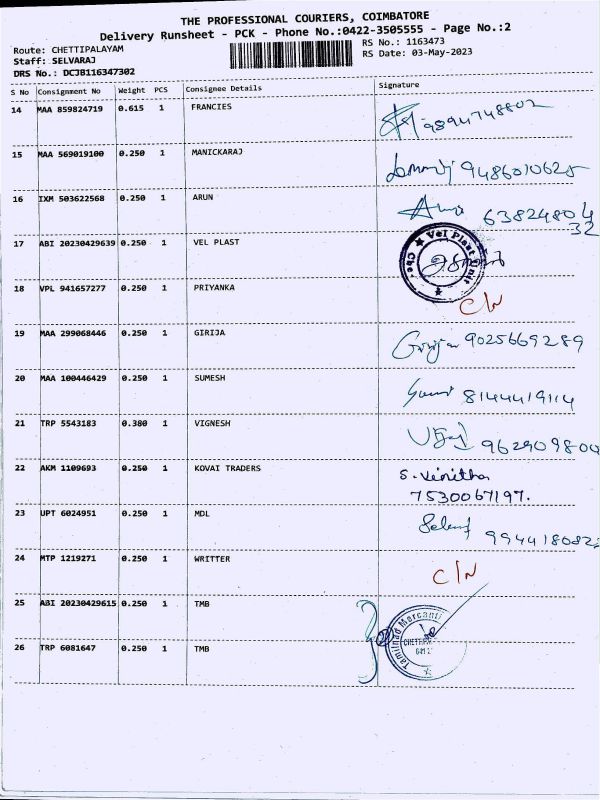 THE PROFESSIONAL COURIERS, COIMBATORE
Delivery Runsheet - PCK - Phone No.:0422-3505555 - Page No.:2
Route: CHETTIPALAYAM
Staff: SELVARAJ
DRS No.: DCJB116347302
RS No.: 1163473
RS Date: 03-May-2023
S No Consignment No Weight PCS Consignee Details Signature
14 MAA 859824719 0.615 1 FRANCIES 9894748802
15 MAA 569019100 0.250 1 MANICKARAJ 9486010625
16 IXM 503622568 0.250 1 ARUN 63824804
32
17 ABI 20230429639 0.250 1 VEL PLAST Vel Plast Unit
18 VPL 941657277 0.250 1 PRIYANKA C/N
19 MAA 299068446 0.250 1 GIRIJA Girija 9025669289
20 MAA 100446429 0.250 1 SUMESH 8144419114
21 TRP 5543183 0.380 1 VIGNESH 962909800
22 AKM 1109693 0.250 1 KOVAI TRADERS S. Vinitha
7530067197.
23 UPT 6024951 0.250 1 MDL 994418082
24 MTP 1219271 0.250 1 WRITTER C/N
25 ABI 20230429615 0.250 1 TMB Tamilnad Mercanti
26 TRP 6081647 0.250 1 TMB